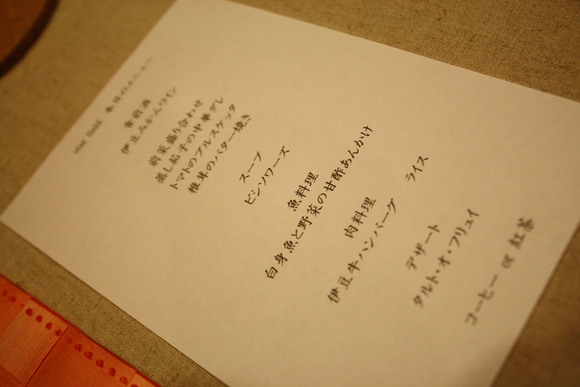 本日のメニュー
食前酒
伊豆みかんワイン
前菜盛り合わせ
蒸し茄子の中華ダレ
トマトのブルスケッタ
椎茸のバター焼き
スープ
ビシソワーズ
魚料理
白身魚と野菜の甘酢あんかけ
肉料理
伊豆牛ハンバーグ
ライス
デザート
タルト・オ・フリュイ
コーヒー or 紅茶